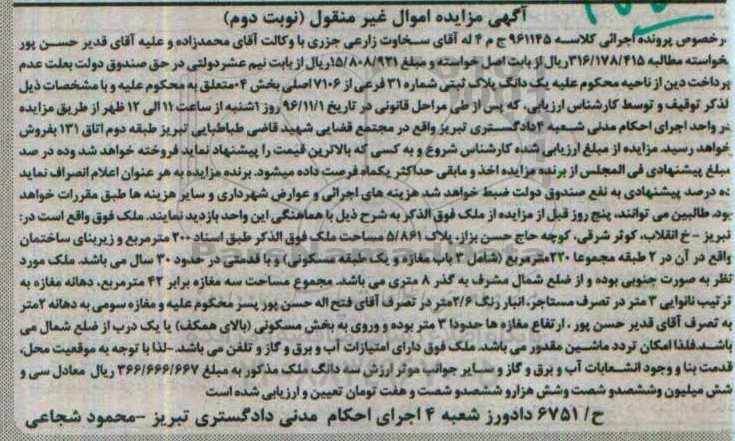 آگهی مزایده اموال غیر منقول (نوبت دوم)
درخصوص پرونده اجرائی کلاسه ۹۶۱۱۴۵ ج م ۴ له آقای سخاوت زارعی جزری با وکالت آقای محمدزاده و علیه آقای قدیر حسن پور
بخواسته مطالبه ۳۱۶/۱۷۸/۴۱۵ریال از بابت اصل خواسته و مبلغ ۱۵/۸۰۸/۹۲۱ریال از بابت نیم عشر دولتی در حق صندوق دولت بعلت عدم
پرداخت دین از ناحیه محکوم علیه یک دانگ پلاک ثبتی شماره ۳۱ فرعی از ۷۱۰۶اصلی بخش ۴ متعلق به محکوم علیه و با مشخصات ذیل
لذکر توقیف و توسط کارشناس ارزیابی، که پس از طی مراحل قانونی در تاریخ ۹۶/۱۱/۱ روز ۱شنبه از ساعت ۱۱ الی ۱۲ ظهر از طریق مزایده
در واحد اجرای احکام مدنی شعبه ۴دادگستری تبریز واقع در مجتمع قضایی شهید قاضی طباطبایی تبریز طبقه دوم اتاق ۱۳۱ بفروش
خواهد رسید. مزایده از مبلغ ارزیابی شده کارشناس شروع و به کسی که بالاترین قیمت را پیشنهاد نماید فروخته خواهد شد وده در صد
مبلغ پیشنهادی فی المجلس از برنده مزایده اخذ و مابقی حداکثر یکماه فرصت داده میشود. برنده مزایده به هر عنوان اعلام انصراف نماید
ده درصد پیشنهادی به نفع صندوق دولت ضبط خواهد شد هزینه های اجرائی و عوارض شهرداری و سایر هزینه ها طبق مقررات خواهد
بود. طالبین می توانند، پنج روز قبل از مزایده از ملک فوق الذکر به شرح ذیل با هماهنگی این واحد بازدید نمایند. ملک فوق واقع است در:
تبریز - خ انقلاب، کوثر شرقی، کوچه حاج حسن بزاز، پلاک ۵/۸۶۱ مساحت ملک فوق الذکر طبق اسناد ۲۰۰ مترمربع و زیربنای ساختمان
واقع در آن در ۲ طبقه مجموعا ۲۲۰مترمربع (شامل ۳ باب مغازه و یک طبقه مسکونی) و با قدمتی در حدود ۳۰ سال می باشد. ملک مورد
نظر به صورت جنوبی بوده و از ضلع شمال مشرف به گذر ۸ متری می باشد. مجموع مساحت سه مغازه برابر ۴۲ مترمربع، دهانه مغازه به
ترتیب نانوایی ۳ متر در تصرف مستاجر، انبار رنگ ۲/۶متر در تصرف آقای فتح اله حسن پور پسر محکوم علیه و مغازه سومی به دهانه ۲متر
به تصرف آقای قدیر حسن پور ، ارتفاع مغازه ها حدودا ۳ متر بوده و وروی به بخش مسکونی (بالای همکف) با یک درب از ضلع شمال می
باشد.فلذا امکان تردد ماشین مقدور می باشد. ملک فوق دارای امتیازات آب و برق و گاز و تلفن می باشد.-لذا با توجه به موقعیت محل،
قدمت بنا و وجود انشعابات آب و برق و گاز و سایر جوانب موثر ارزش سه دانگ ملک مذکور به مبلغ ۳۶۶/۶۶۶/۶۶۷ ریال معادل سی و
شش میلیون وششصدو شصت وشش هزارو ششصدو شصت و هفت تومان تعیین و ارزیابی شده است
ح/ ۶۷۵۱ دادورز شعبه ۴ اجرای احکام مدنی دادگستری تبریز -محمود شجاعی